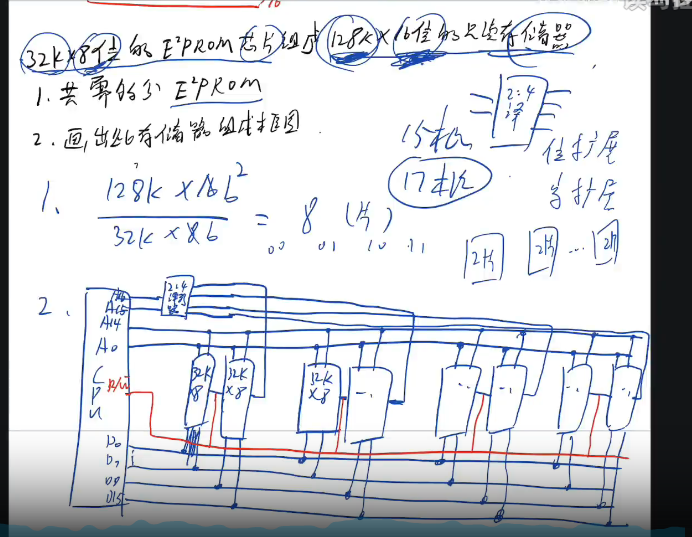 32K×8位的E²PROM芯片组成128K×16位的只读存储器
1. 共需的多少E²PROM
2. 画出此存储器组成框图
2:4
译
15根
17根
位扩展
字扩展
1. 128K×16b 2
32K×8b
= 8 (片)
00 01 10 11
2片 2片 ... 2片
2.
A16
A15
A14
A0
2:4
译码
器
CPU
R/W
32K
×8
32K
×8
32K
×8
D0
D7
D8
D15